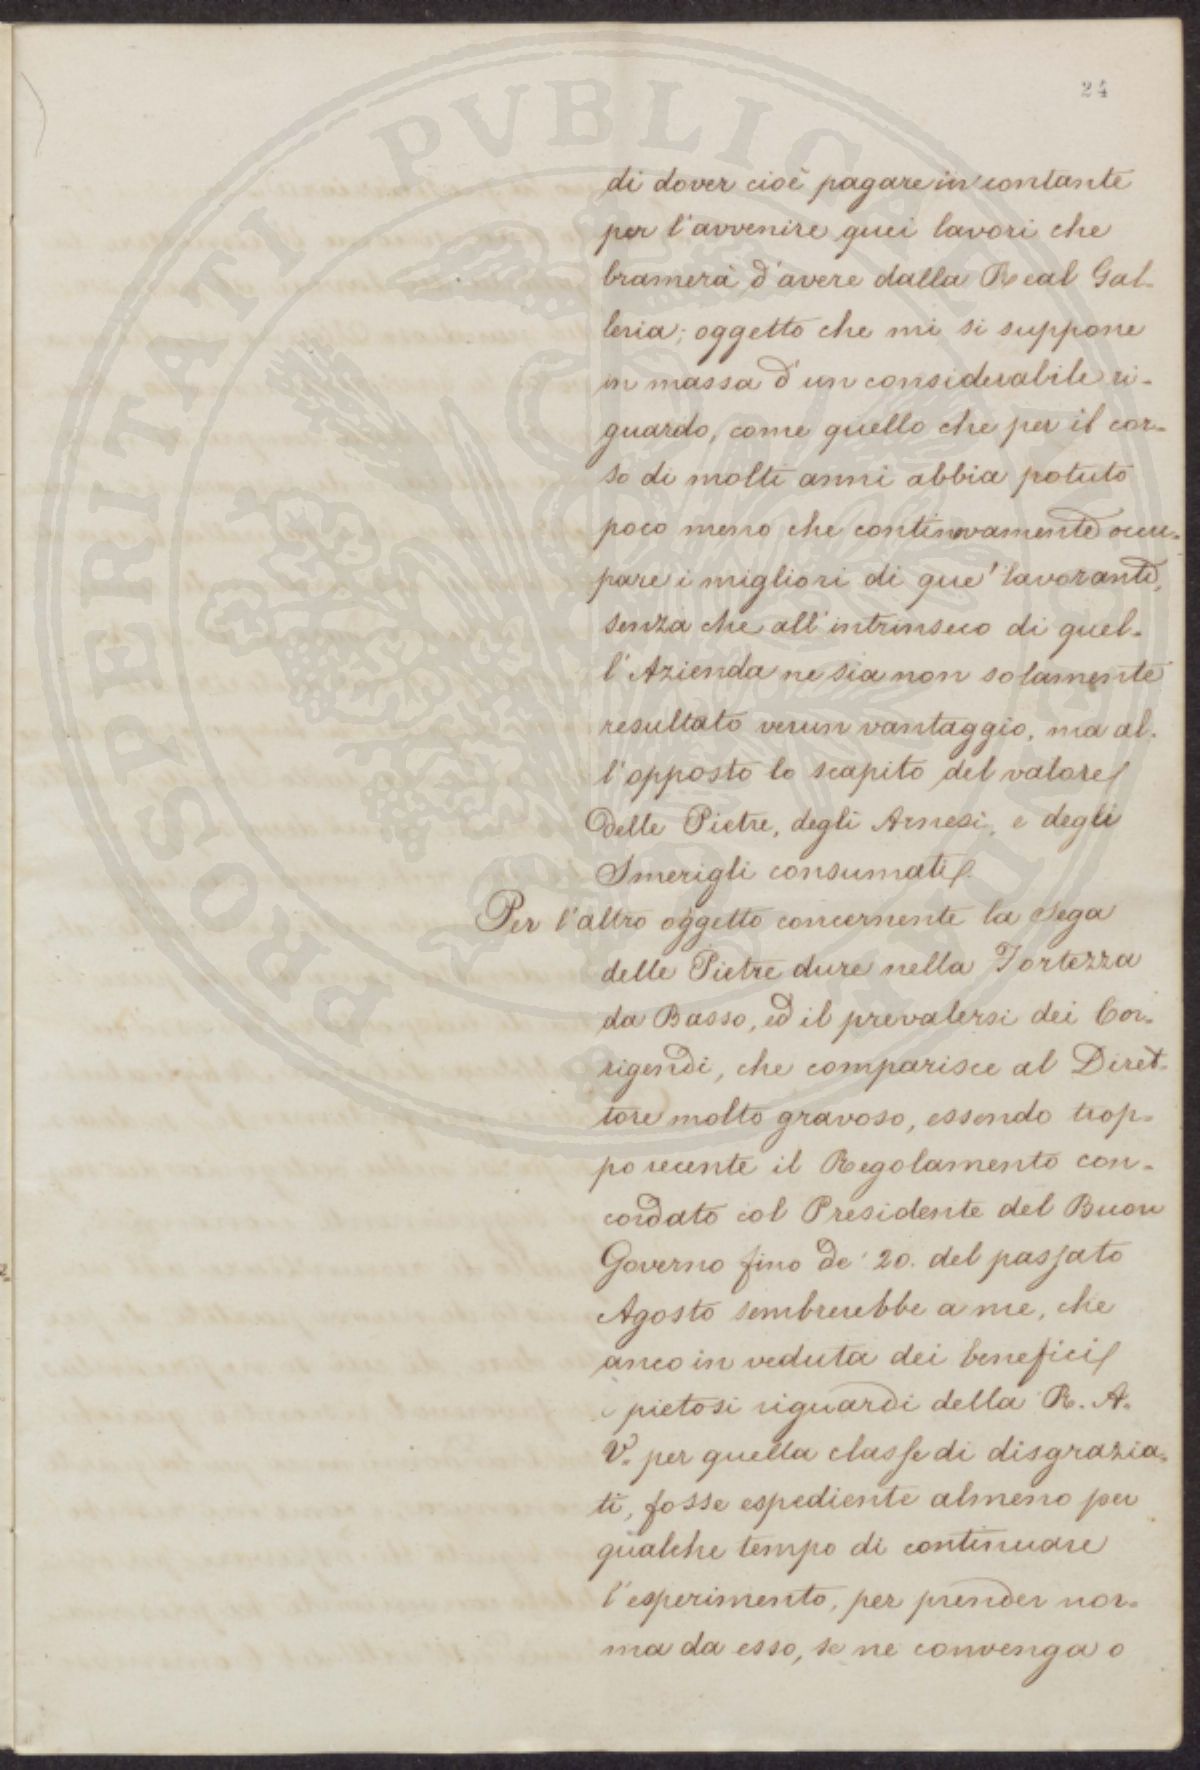 24
di dover cioè pagare in contante
per l'avvenire quei lavori che
bramerà d'avere dalla Real Gal-
leria; oggetto che mi si suppone
in massa d'un considerabile ri-
guardo, come quello che per il cor-
so di molti anni abbia potuto
poco meno che continovamente occu-
pare i migliori di que' lavoranti,
senza che all'intrinseco di quel-
l'Azienda ne sia non solamente
resultato verun vantaggio, ma al-
l'opposto lo scapito del valore
delle Pietre, degli Arnesi, e degli
Smerigli consumati.
Per l'altro oggetto concernente la Sega
delle Pietre dure nella Fortezza
da Basso, ed il prevalersi dei Cor-
rigendi, che comparisce al Diret-
tore molto gravoso, essendo trop-
po recente il Regolamento con-
cordato col Presidente del Buon
Governo fino de' 20. del passato
Agosto sembrerebbe a me, che
anco in veduta dei benefici
e pietosi riguardi della R. A.
V. per quella classe di disgrazia-
ti, fosse espediente almeno per
qualche tempo di continuare
l'esperimento, per prender nor-
ma da esso, se ne convenga o
PROSPERITATI PVBLICAE